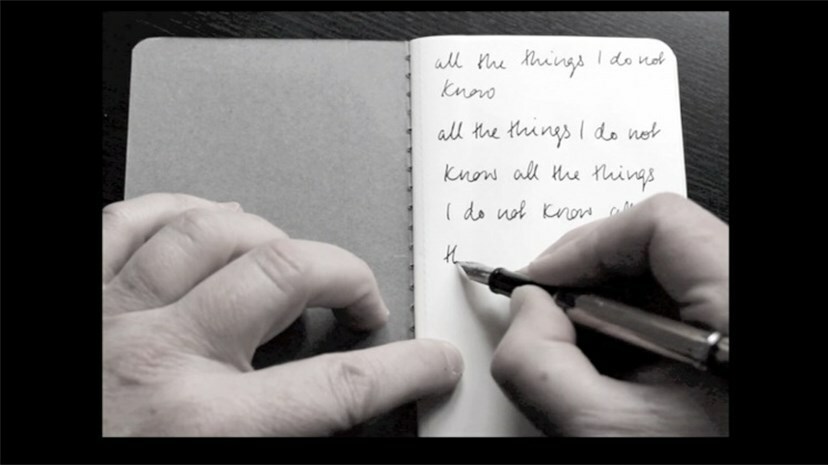 all the things I do not
know
all the things I do not
know all the things
I do not know al
th